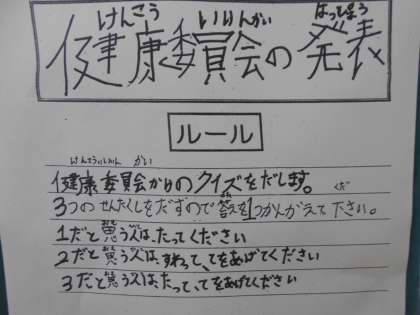 けんこう いいんかい はっぴょう
健康委員会の発表
ルール
けんこういいん かい
健康委員会からのクイズをだします。
くだ
3つのせんたくしをだすので答えを1つかんがえて下さい。
1だと思う人は、たってください
2だと思う人は、すわって、てをあげてください
3だと思う人は、たって、てをあげてください